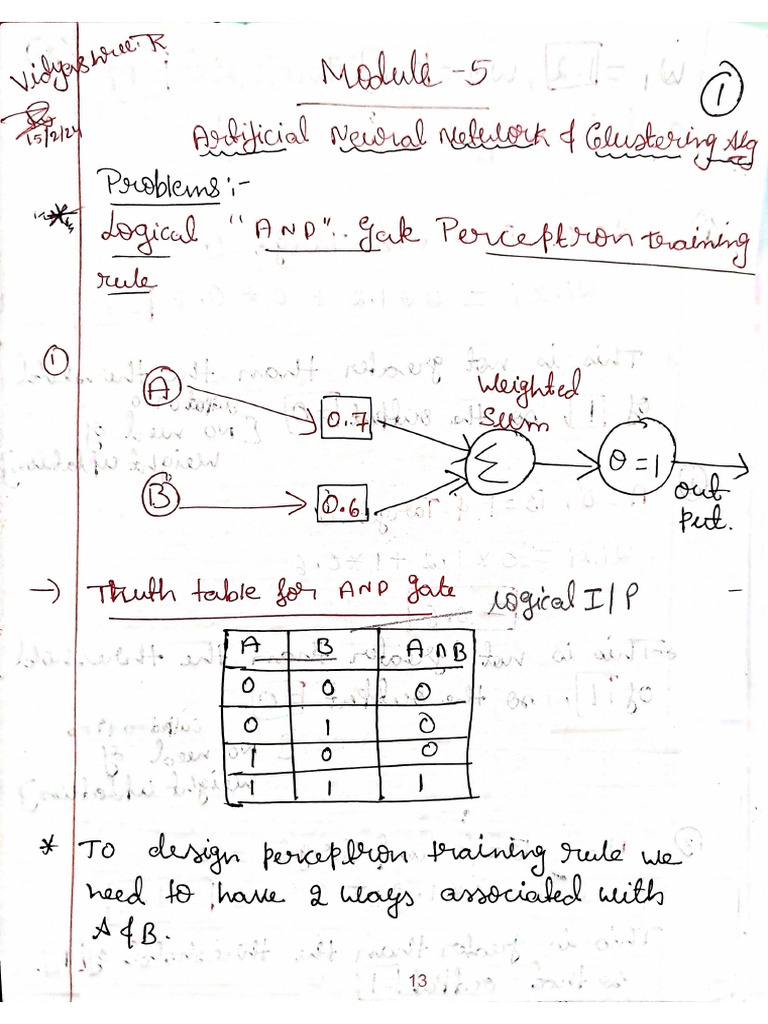 Vidyashree.R
15/2/24
Module-5
①
Artificial Neural Network & Clustering Alg
Problems:-
*
Logical "AND" gate Perceptron training
rule
①
A
0.7
B
0.6
Weighted
Sum
Σ
θ=1
out
put.
→ Truth table for AND gate
Logical I/P
A B A∩B
0 0 0
0 1 0
1 0 0
1 1 1
* To design perceptron training rule we
need to have 2 ways associated with
A & B.
13